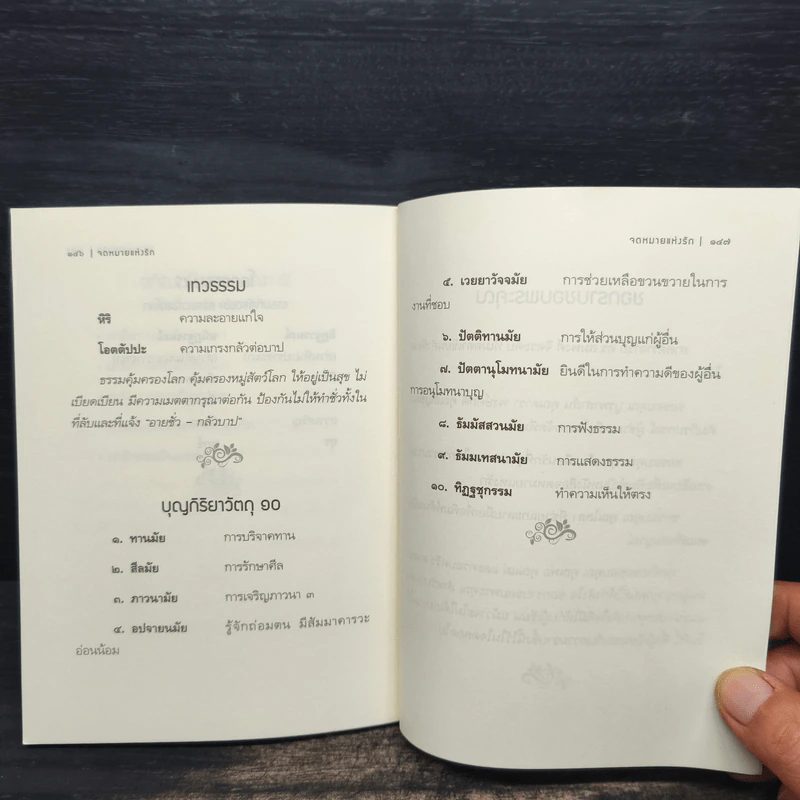 ๑๔๖ | จดหมายแห่งรัก
เทวธรรม
หิริ ความละอายแก่ใจ
โอตตัปปะ ความเกรงกลัวต่อบาป
ธรรมคุ้มครองโลก คุ้มครองหมู่สัตว์โลก ให้อยู่เป็นสุข ไม่
เบียดเบียน มีความเมตตากรุณาต่อกัน ป้องกันไม่ให้ทำชั่วทั้งใน
ที่ลับและที่แจ้ง “อายชั่ว – กลัวบาป”
บุญกิริยาวัตถุ ๑๐
๑. ทานมัย การบริจาคทาน
๒. สีลมัย การรักษาศีล
๓. ภาวนามัย การเจริญภาวนา ๓
๔. อปจายนมัย รู้จักถ่อมตน มีสัมมาคารวะ
อ่อนน้อม
จดหมายแห่งรัก | ๑๔๗
๕. เวยยาวัจจมัย การช่วยเหลือขวนขวายในการ
งานที่ชอบ
๖. ปัตติทานมัย การให้ส่วนบุญแก่ผู้อื่น
๗. ปัตตานุโมทนามัย ยินดีในการทำความดีของผู้อื่น
การอนุโมทนาบุญ
๘. ธัมมัสสวนมัย การฟังธรรม
๙. ธัมมเทสนามัย การแสดงธรรม
๑๐. ทิฏฐุชุกรรม ทำความเห็นให้ตรง